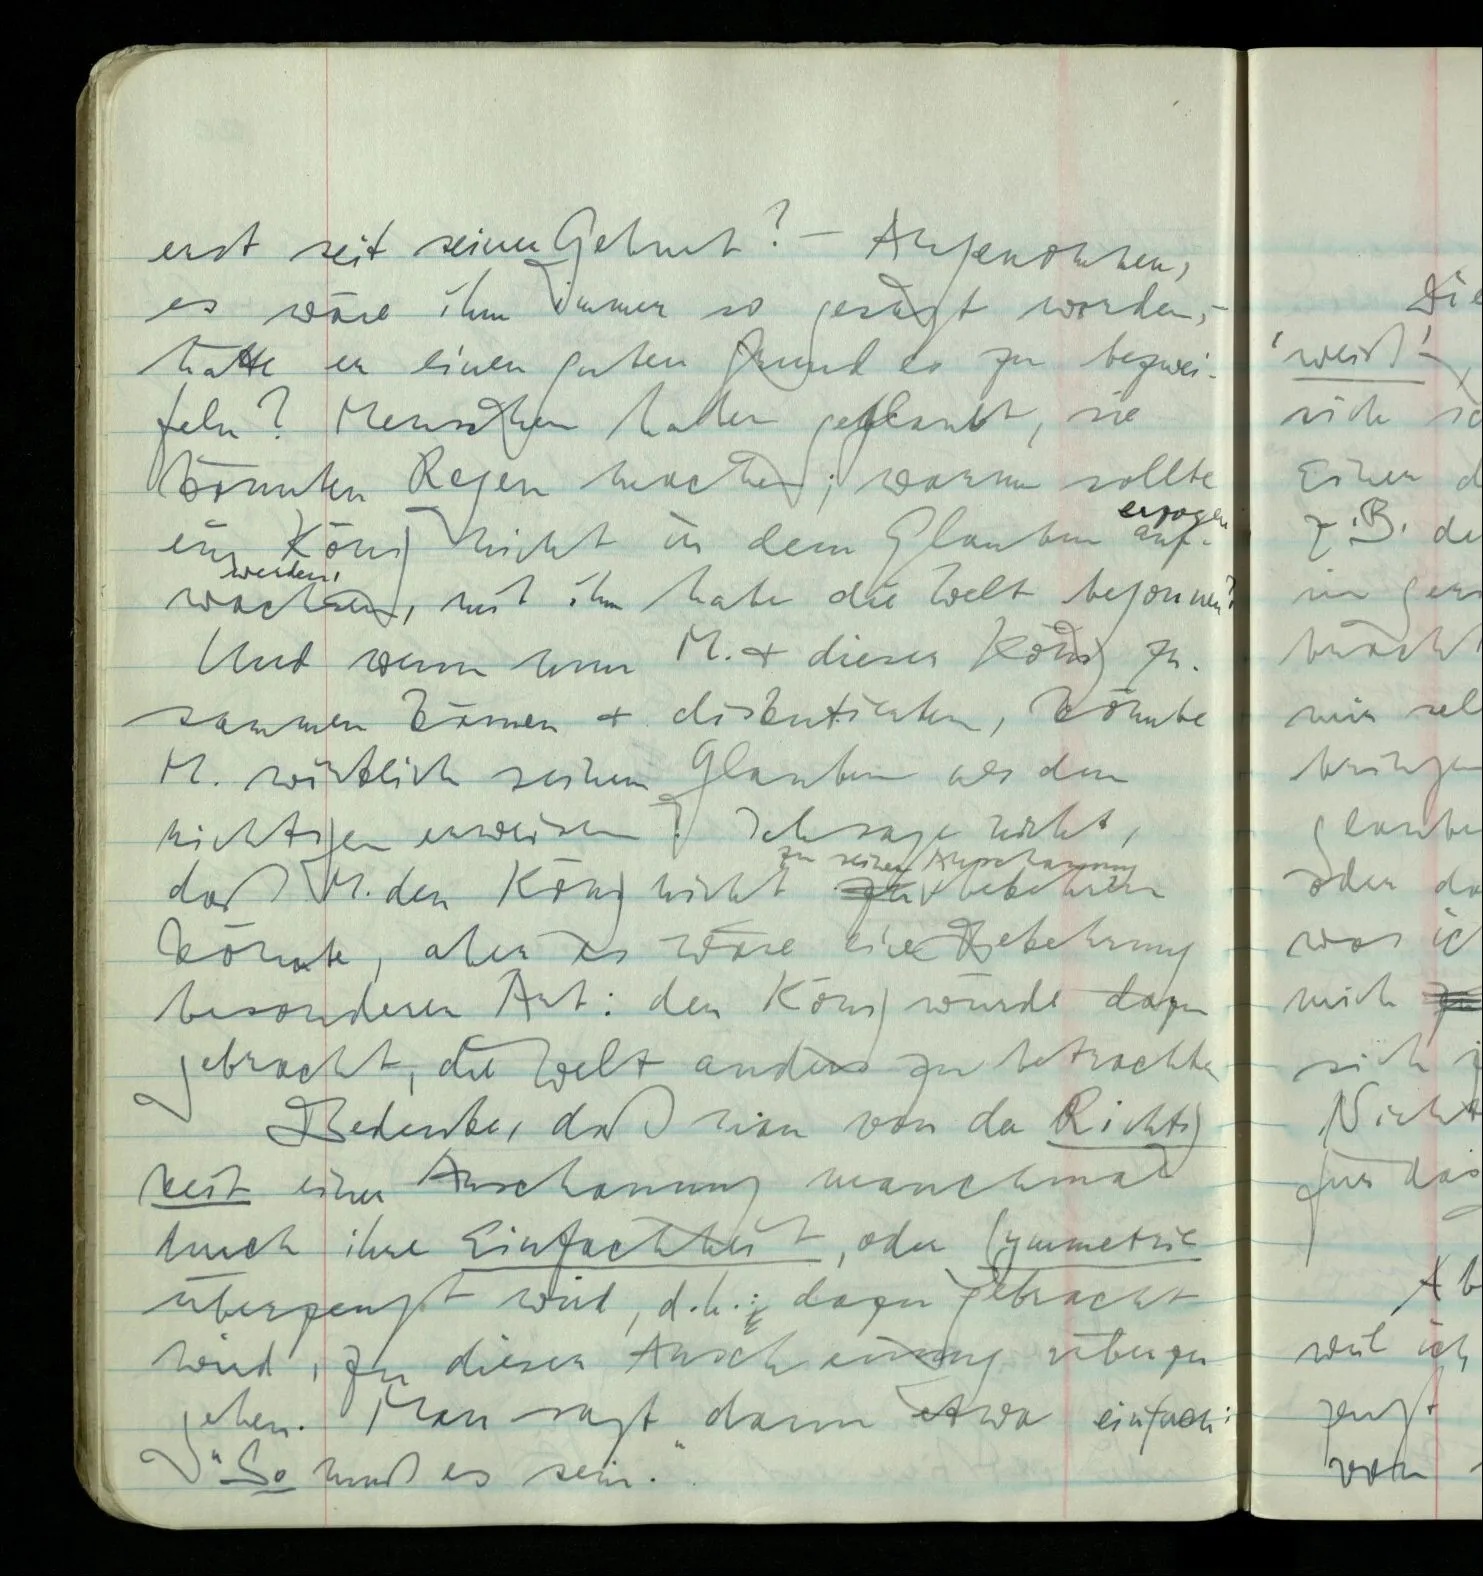 erst seit seiner Geburt? – Angenommen,
es wäre ihm immer so gesagt worden, –
hatte er einen guten Grund es zu bezwei-
feln? Menschen haben geglaubt, sie
könnten Regen machen; warum sollte
erzogen
ein König nicht in dem Glauben auf-
werden,
wachsen, mit ihm habe die Welt begonnen?
Und wenn nun M. + dieser König zu-
sammen kämen + diskutierten, könnte
M. wirklich seinen Glauben als den
richtigen erweisen? Ich sage nicht,
zu seiner Anschauung
daß M. den König nicht zu bekehren
könnte, aber es wäre eine Bekehrung
besonderer Art: der König würde dazu
gebracht, die Welt anders zu betrachten
Bedenke, daß man von der Richtig
keit einer Anschauung manchmal
durch ihre Einfachheit, oder Symmetrie
überzeugt wird, d.h.: dazu gebracht
wird, zu dieser Anschauung überzu
gehen. Man sagt dann etwa einfach:
"So muß es sein."
Die
'weiß'
sich
Einer
z.B.
glaube
oder
was ich
mich
sich
Nicht
für das
Ab
weil ich
zeugt
von